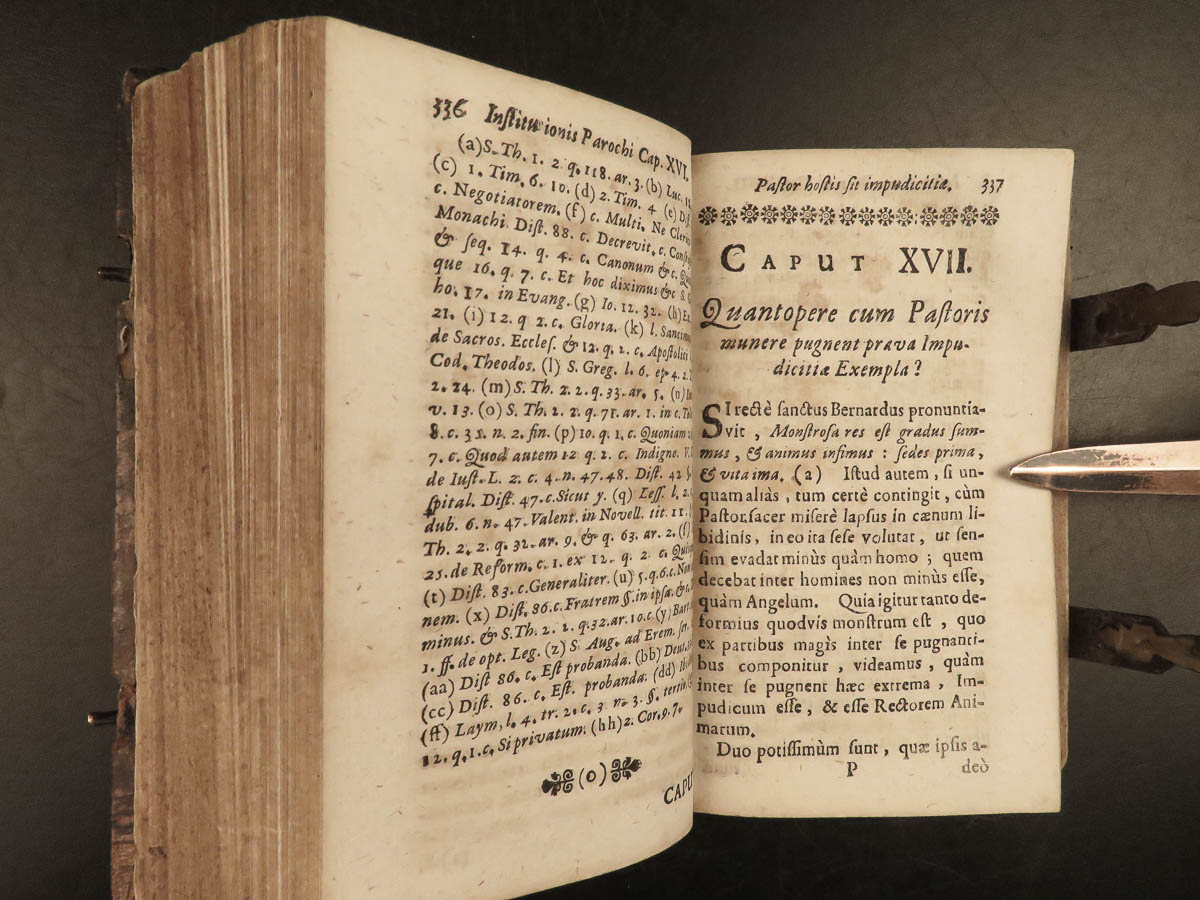 336 Institutionis Parochi Cap. XVI.
(a) S. Th. 1. 2. q. 118. ar. 3. (b) Luc.
(c) 1. Tim. 6. 10. (d) 2. Tim. 4 (e)
c. Negotiatorem. (f) c. Multi. Ne
Monachi. Dist. 88. c. Decrevit. c.
& seq. 14. q. 4. c. Canonum & c.
que 16. q. 7. c. Et hoc diximus & c S.
ho. 17. in Evang. (g) Io. 12. 32. (h)
21. (i) 12. q 2. c. Gloria. (k) l.
de Sacros. Eccles. & 12. q. 1. c.
Cod. Theodos. (l) S. Greg. l. 6. ep. 4.
2. 24. (m) S. Th. 2. 2. q. 33. ar. 5. (n)
v. 13. (o) S. Th. 2. 2. q. 71. ar. 1. in c.
8. c. 3 s. n. 2. fin. (p) 10. q. 1. c. Quoniam
7. c. Quod autem 12 q. 2. c. Indigne.
de Iust. L. 2. c. 4. n. 47. 48. Dist. 42
spital. Dist. 47. c. Sicut y. (q) Less. l. 2.
dub. 6. n. 47. Valent. in Novell. tit. 11.
Th. 2. 2. q. 32. ar. 9. & q. 63. ar. 2.
25. de Reform. c. 1. ex 12. q. 2. c.
(t) Dist. 83. c. Generaliter. (u) 5. q. 6. c.
nem. (x) Dist. 86. c. Fratrem §. in ipsa.
minus. & S. Th. 2. 2. q. 32. ar. 10. c. (y)
1. ff. de opt. Leg. (z) S. Aug. ad Erem.
(aa) Dist 86. c. Est probanda. (bb)
(cc) Dist. 86. c. Est. probanda. (dd)
(ff) Laym, l. 4. tr. 2. c. 3 n. 3. §.
12. q. 1. c. Si privatum. (hh) 2. Cor. 9. 7.
(o)
Pastor hostis sit impudicitiæ. 337
CAPUT XVII.
Quantopere cum Pastoris
munere pugnent prava Impu-
dicitiæ Exempla?
SI rectè sanctus Bernardus pronuntia-
vit, Monstrosa res est gradus sum-
mus, & animus infimus: sedes prima,
& vita ima. (a) Istud autem, si un-
quam aliàs, tum certè contingit, cùm
Pastor sacer miserè lapsus in cænum li-
bidinis, in eo ita sese volutat, ut sen-
sim evadat minùs quàm homo; quem
decebat inter homines non minùs esse,
quàm Angelum. Quia igitur tanto de-
formius quodvis monstrum est, quo
ex partibus magìs inter se pugnanti-
bus componitur, videamus, quàm
inter se pugnent hæc extrema, Im-
pudicum esse, & esse Rectorem Ani-
marum.
Duo potissimùm sunt, quæ ipsis a-
P deò